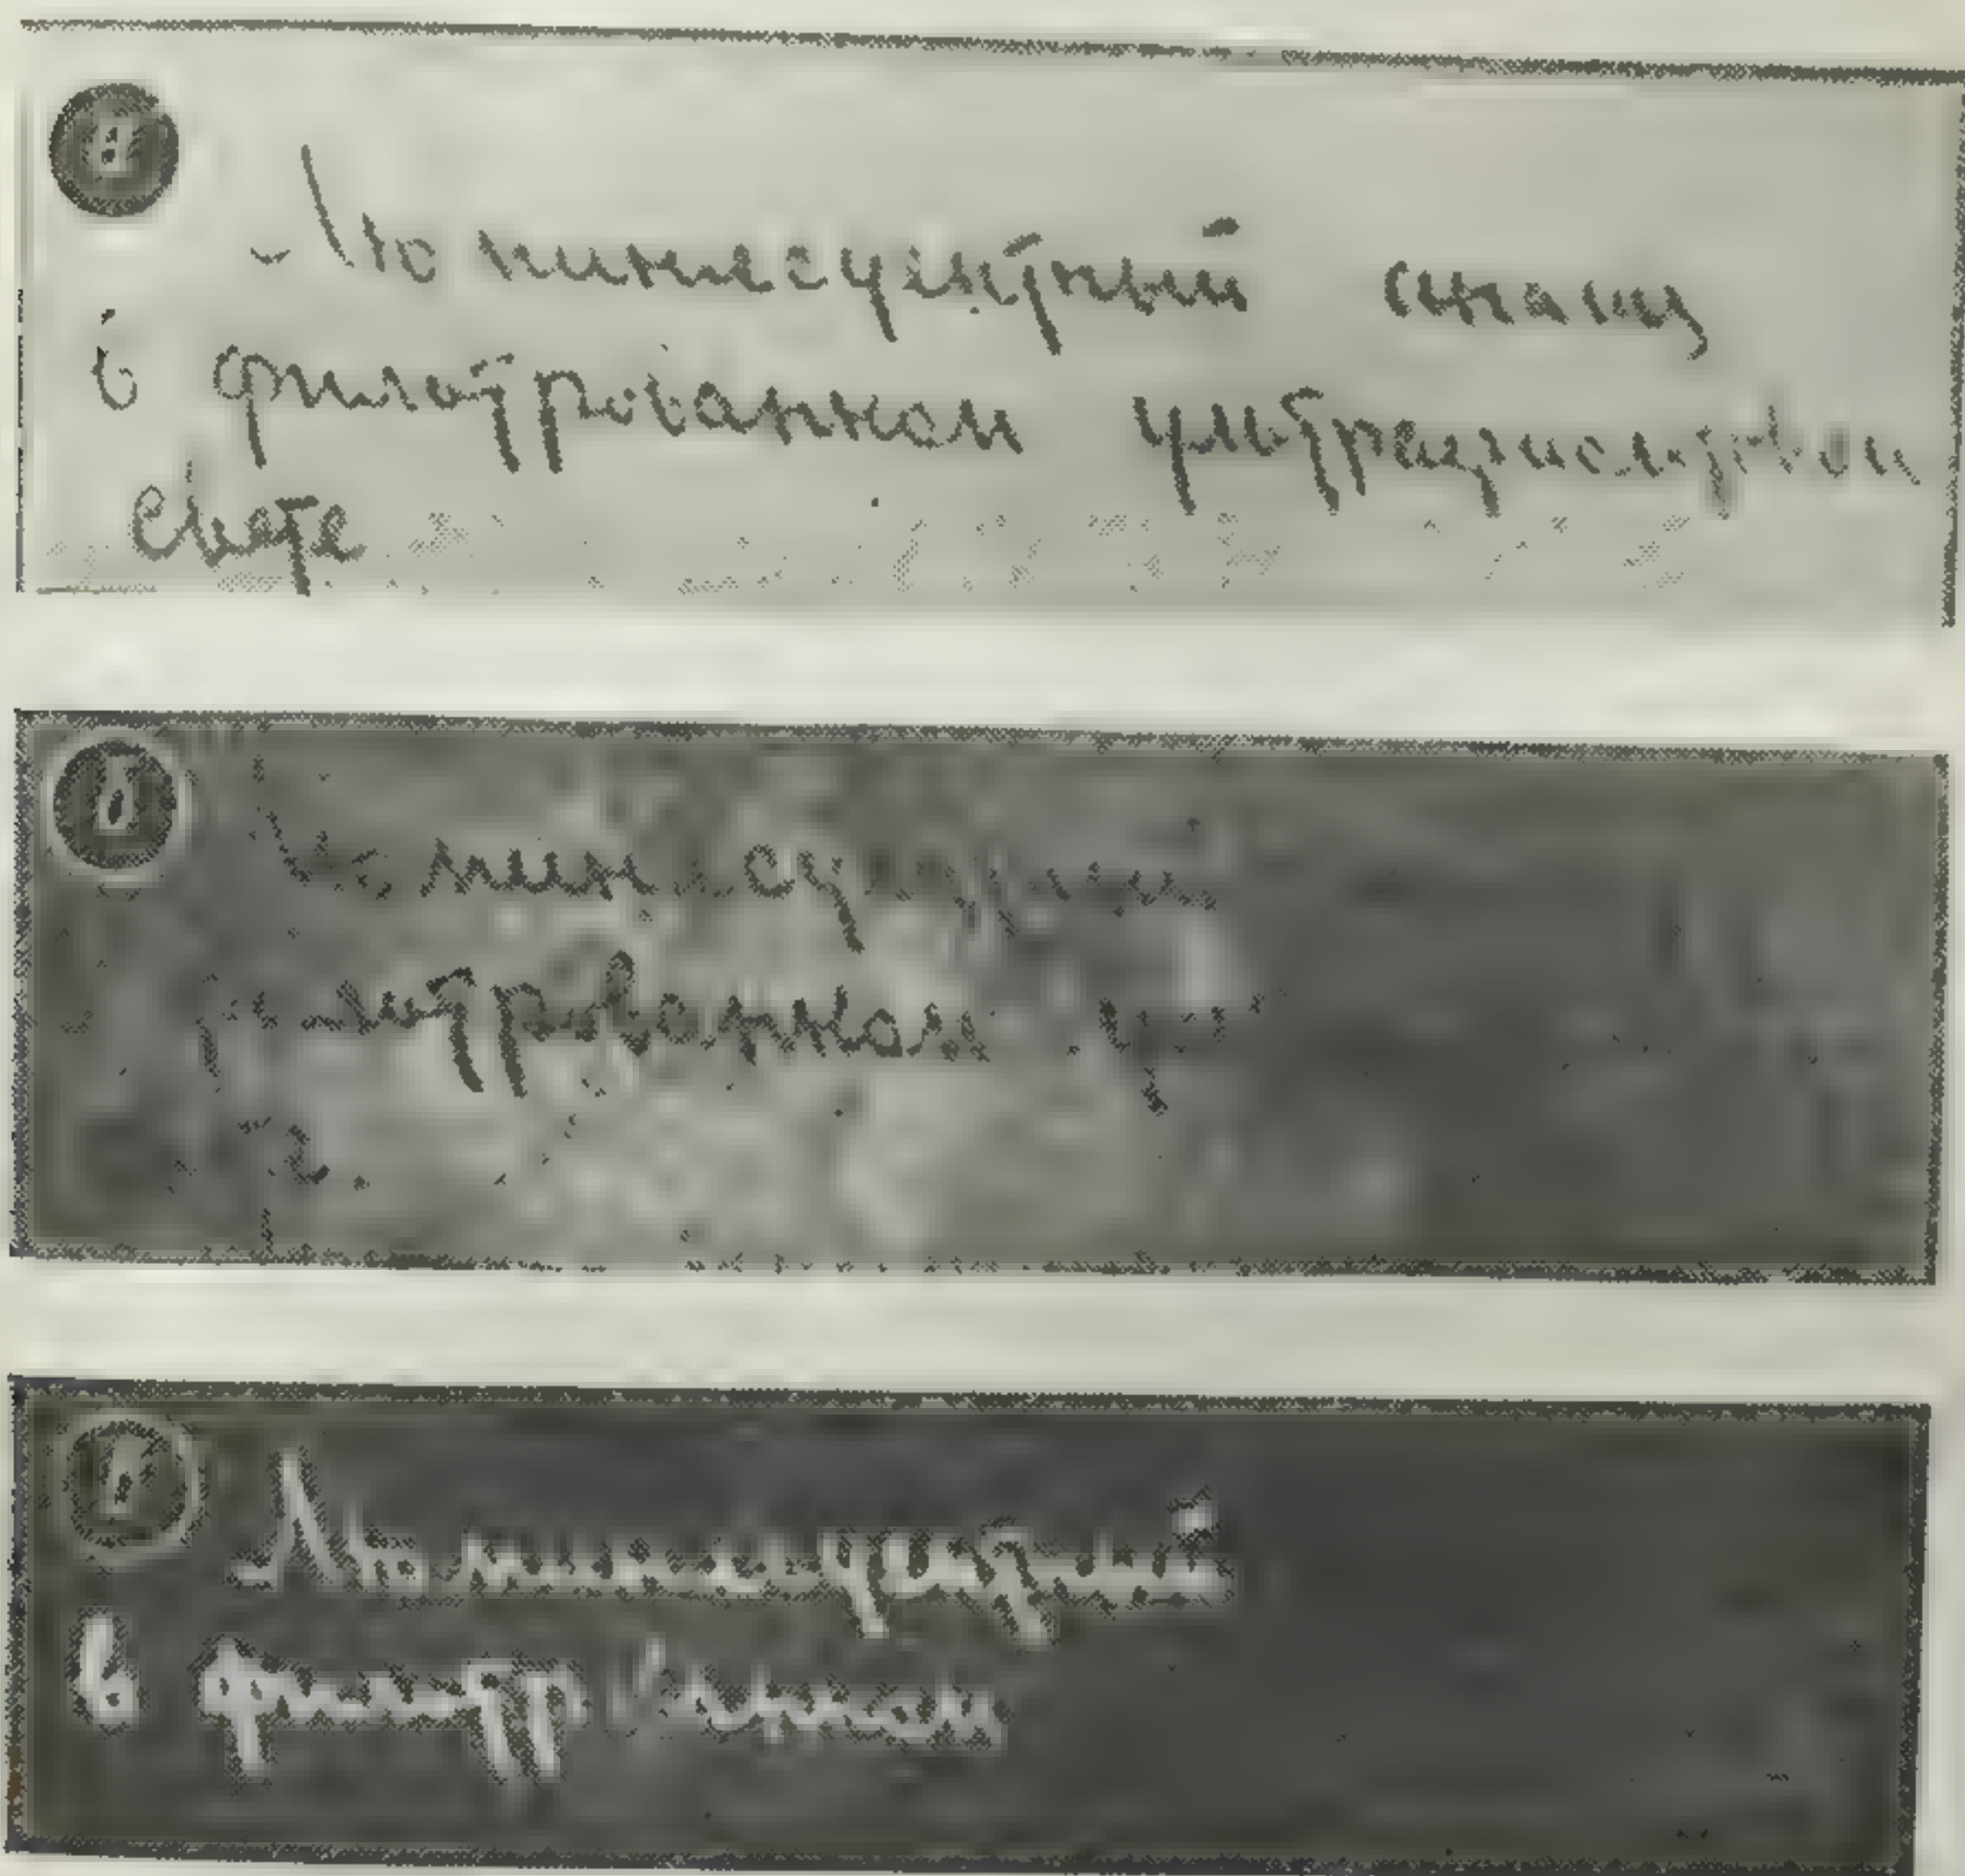 Люминесцентный анализ
в фильтрованном ультрафиолетовом
свете
Люминесцентный
фильтрованном
Люминесцентный
в фильтрованном